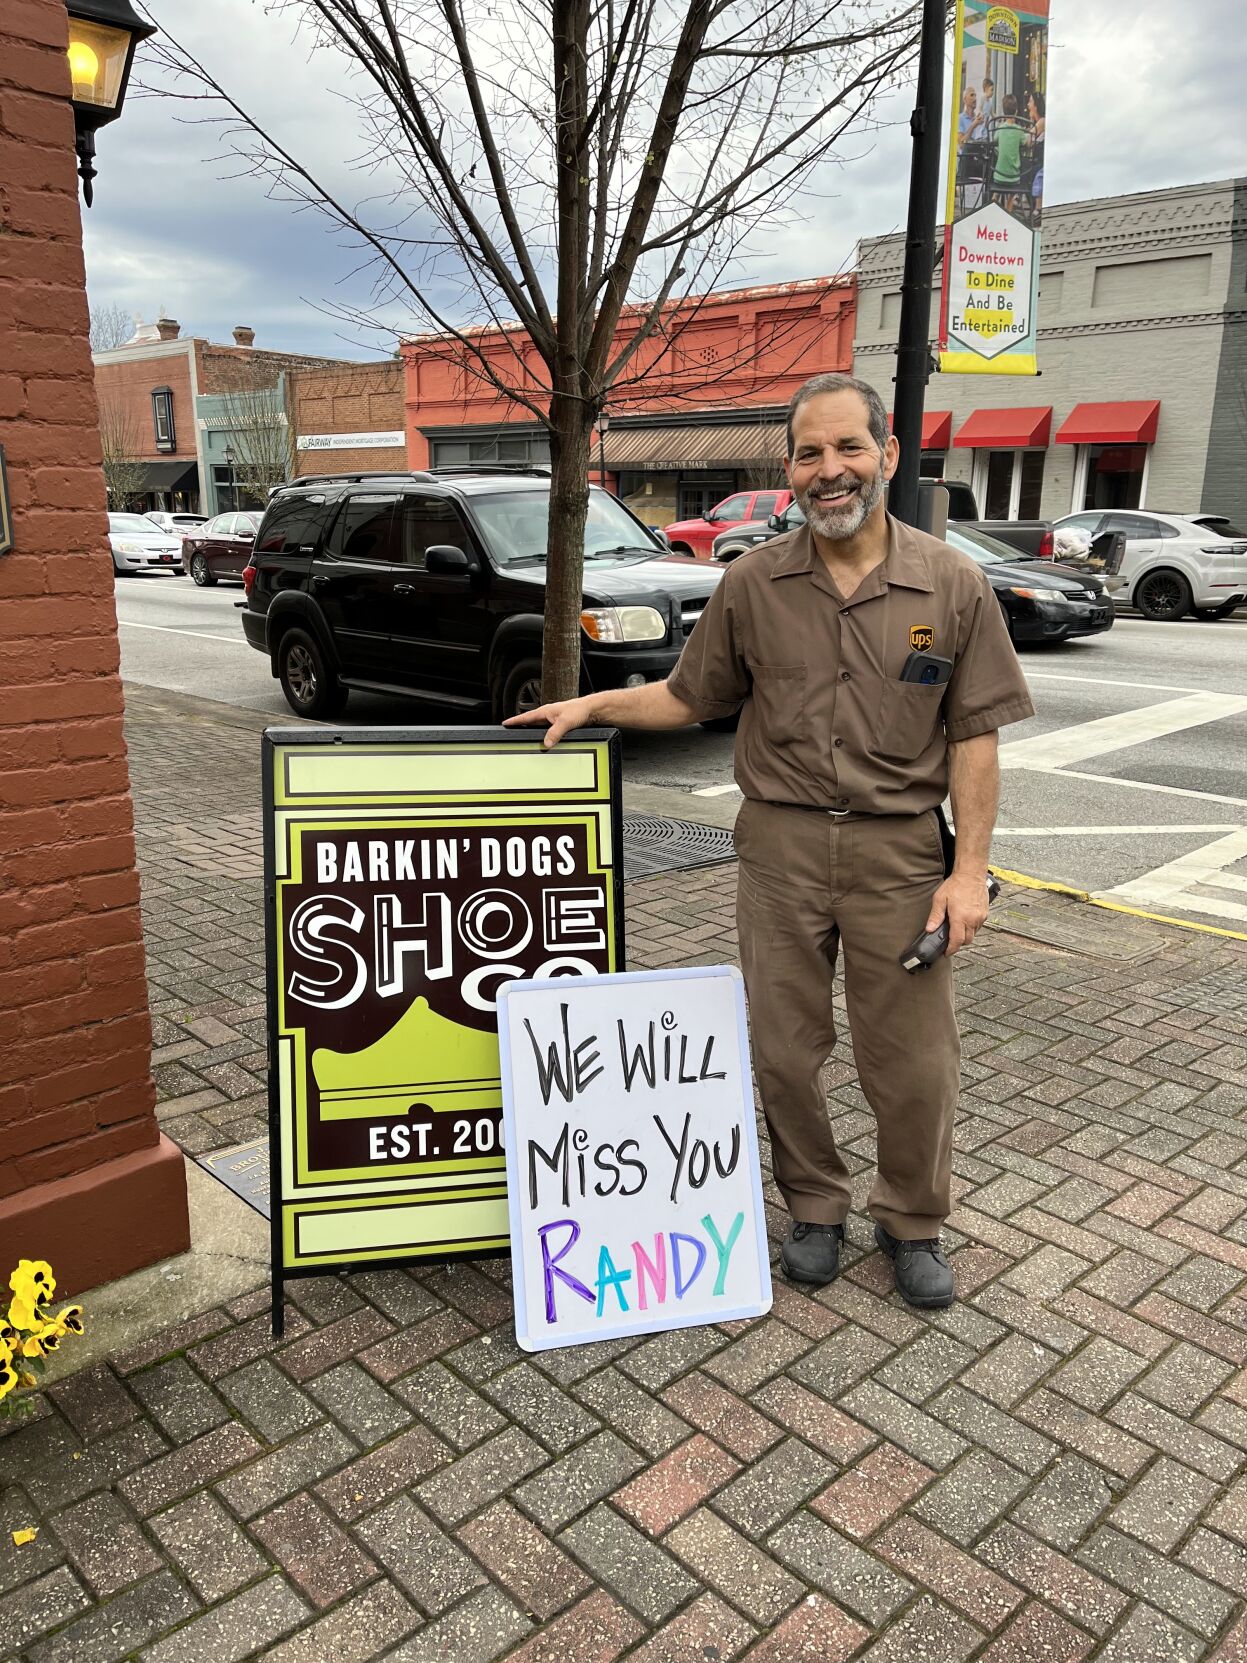 DOWNTOWN
MADISON
Meet
Downtown
To Dine
And Be
Entertained
FAIRWAY INDEPENDENT MORTGAGE CORPORATION
THE CREATIVE MARK
ups
BARKIN' DOGS
SHOE
CO
EST. 200
WE WiLL
MiSS YOU
RANDY